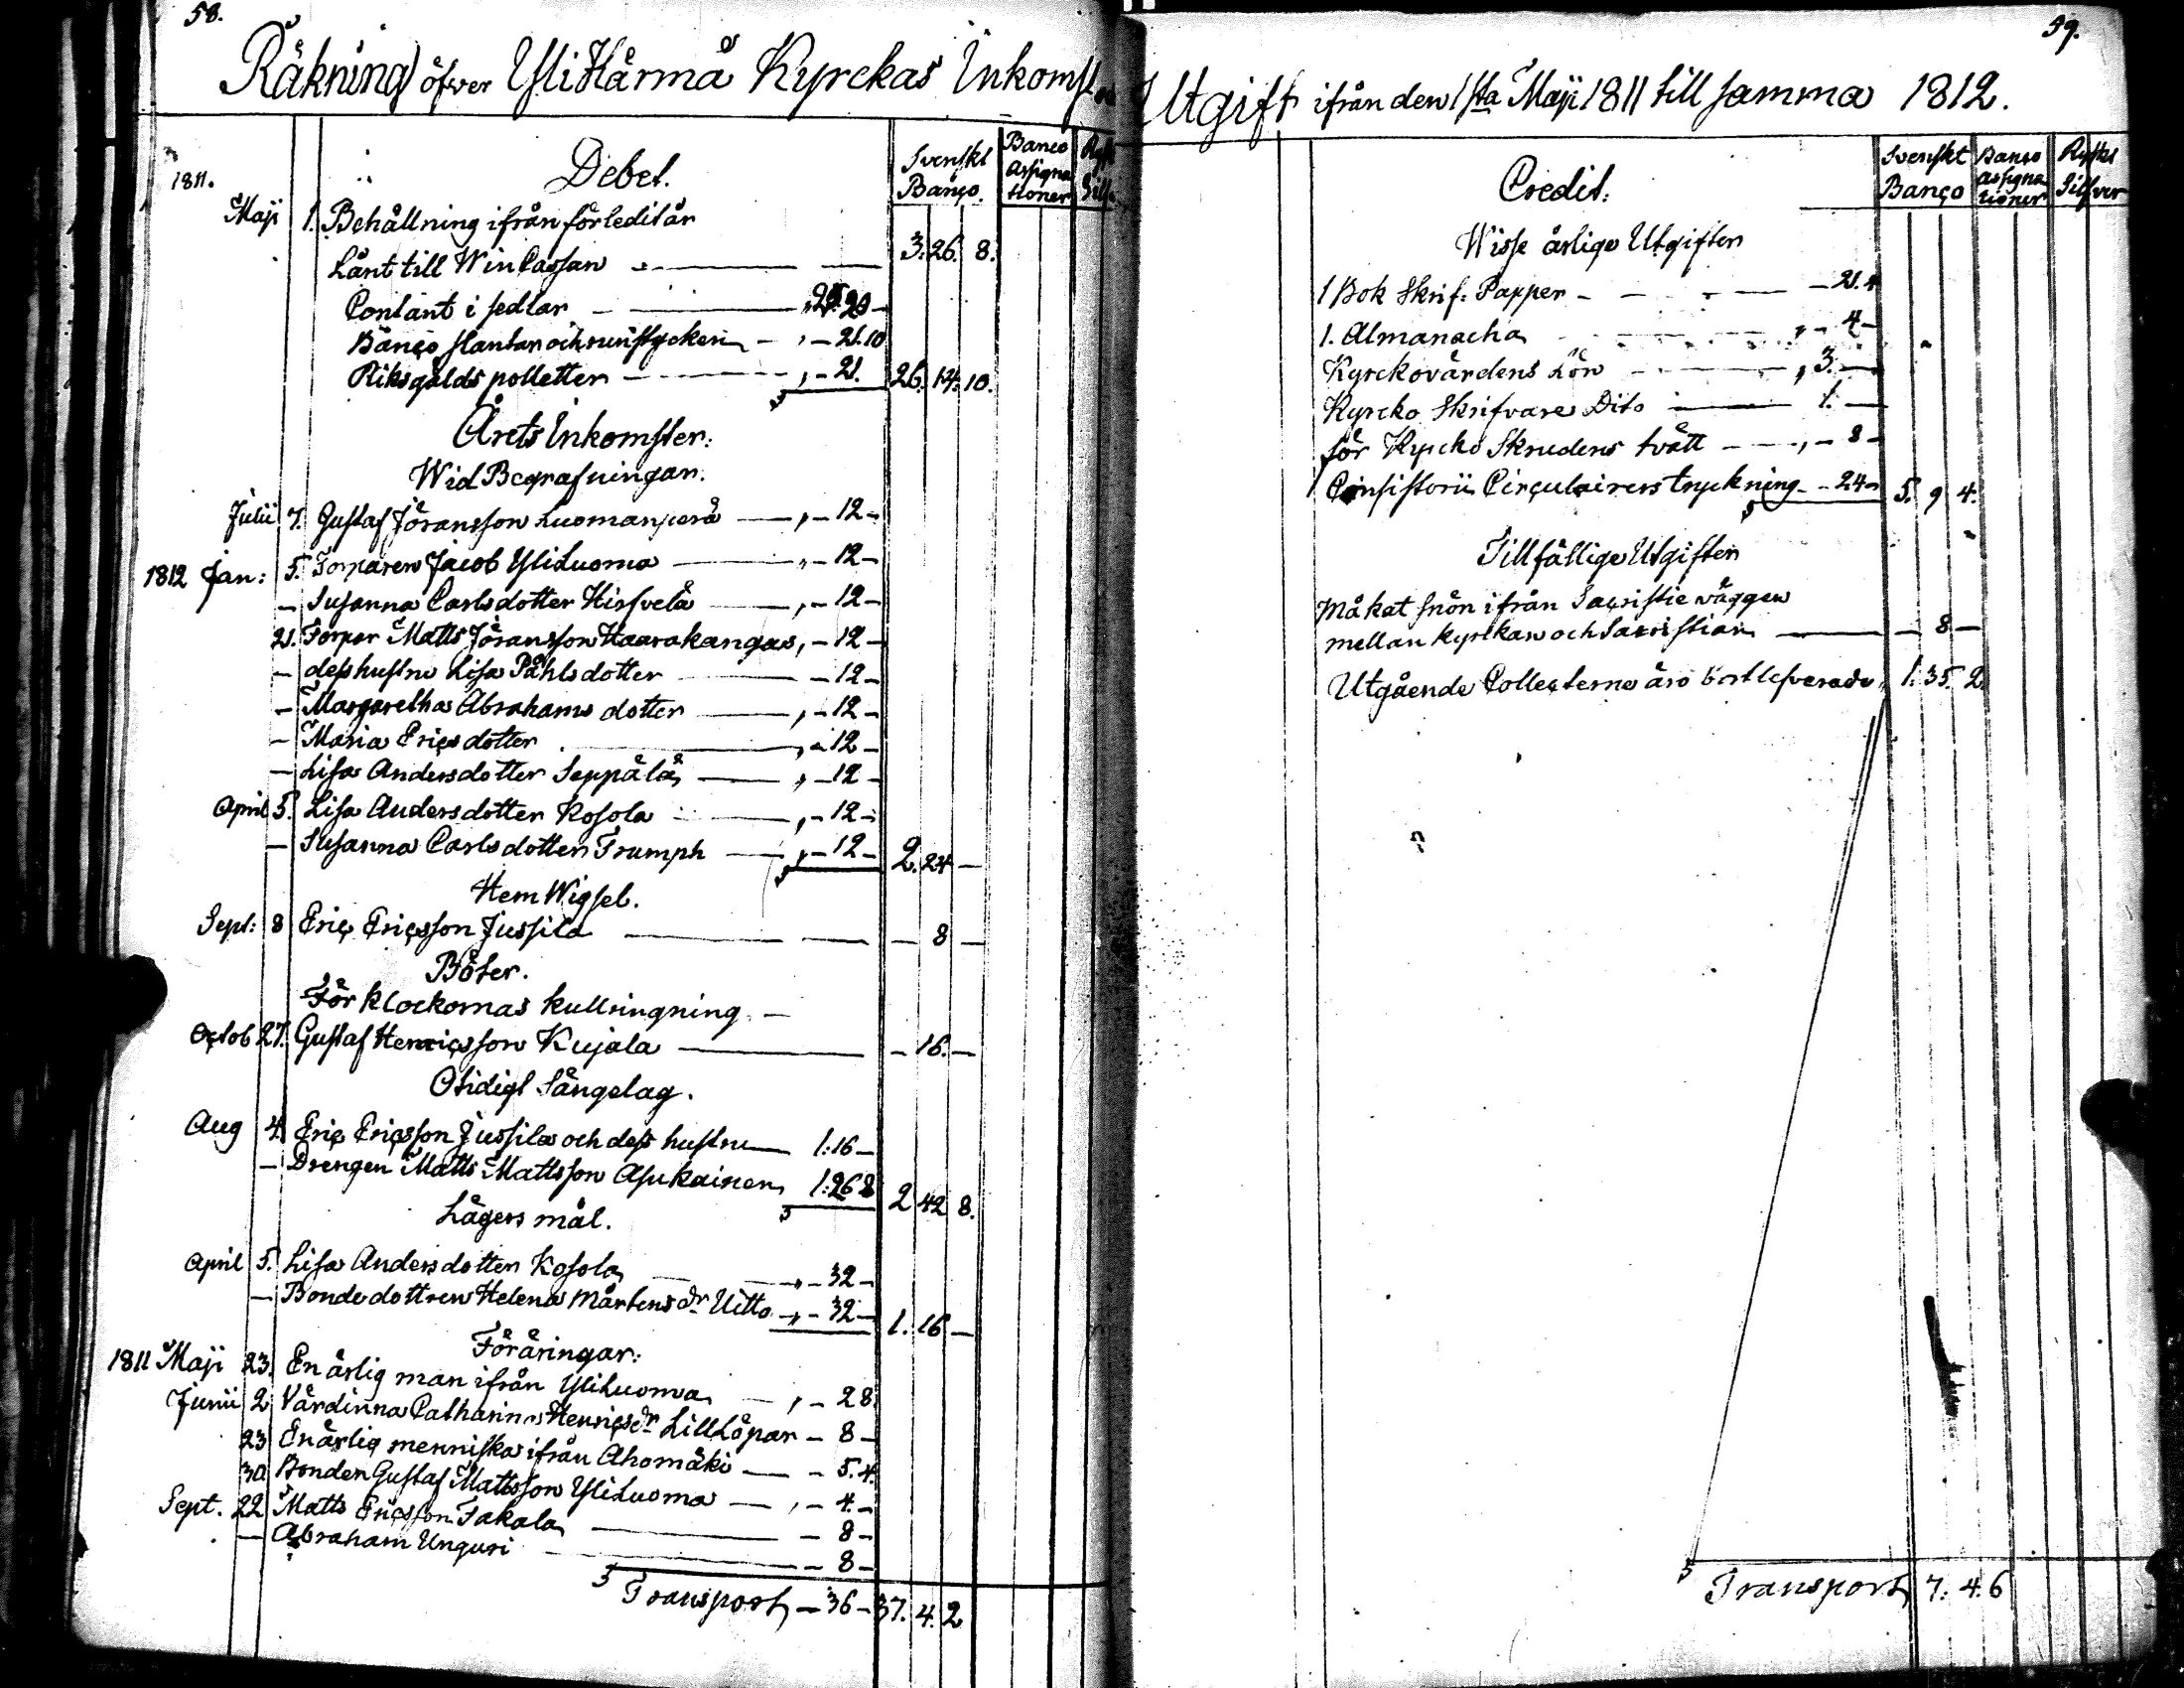 58.
Räkning öfver YliHärmä Kyrckas Inkomst
Debet.
Svenskt Banço.
Banco Assignationer
1811.
Maji 1. Behållning ifrån förledit år
Lånt till Win Cassan — 3. 26. 8.
Contant i sedlar —
Banço slantar och runstycken — 21.10
Riksgälds polletter — 21. 26. 14. 10.
Årets Inkomster:
Wid Begrafningar.
Julii 7. Gustaf Jöransson Luomanperä — 12 -
1812 Jan: 5. Torparen Jacob YliLuoma — 12 -
- Susanna Carlsdotter Hirfvelä — 12 -
21. Torpar Matts Jöransson Haarakangas, - 12 -
- dess hustru Lisa Påhlsdotter — 12 -
- Margaretha Abrahams dotter — 12 -
- Maria Ericsdotter — 12 -
- Lisa Andersdotter Seppälä — 12 -
April 5. Lisa Andersdotter Kosola — 12 -
- Susanna Carlsdotter Trumph — 12 - 2. 24 —
Hem Wigsel.
Sept: 8 Eric Ericsson Jussila — 8 —
Böter.
För klockornas kullringning —
Octob 27. Gustaf Henricsson Kujala — 16. —
Otidigt Sängelag.
Aug 4. Eric Ericsson Jussila och dess hustru — 1:16 -
- Drengen Matts Mattsson Asukainen 1:26 8 2 42 8.
Lägers mål.
April 5. Lisa Andersdotter Kosola — 32 -
- Bondedottren Helena Mårtens dr Uitto — 32 - 1. 16 —
Föräringar:
1811 Maji 23. En ärlig man ifrån YliLuoma — 28
Junii 2 Värdinna Catharina Henrics dr LillLöpar — 8 -
23 En ärlig menniska ifrån Ahomäki — 5. 4.
30 Bonden Gustaf Mattsson YliLuoma — 4. -
Sept. 22 Matts Ericsson Takala — 8 -
- Abraham Unguri — 8 -
Transport — 36 - 37. 4. 2
59.
Utgift ifrån den 1sta Maji 1811 till samma 1812.
Credit.
Svenskt Banço
Banço assignationer
Ryskt Silfver
Wisse årlige Utgifter
1 Bok Skrif: Papper — 21. 4
1. Almanacha — 4 -
Kyrckovärdens Lön — 3. —
Kyrcko Skrifvare Dito — 1. —
för Kyrcko Skrudens tvätt — 8 -
Consistorii Circulairers tryckning — 24 - 5. 9 4.
Tillfällige Utgifter
Måkat snön ifrån Sacristie väggen
mellan kyrkan och Sacristian — 8 —
Utgående Collecterne äro bortlefverade 1. 35. 2.
Transport 7. 4. 6